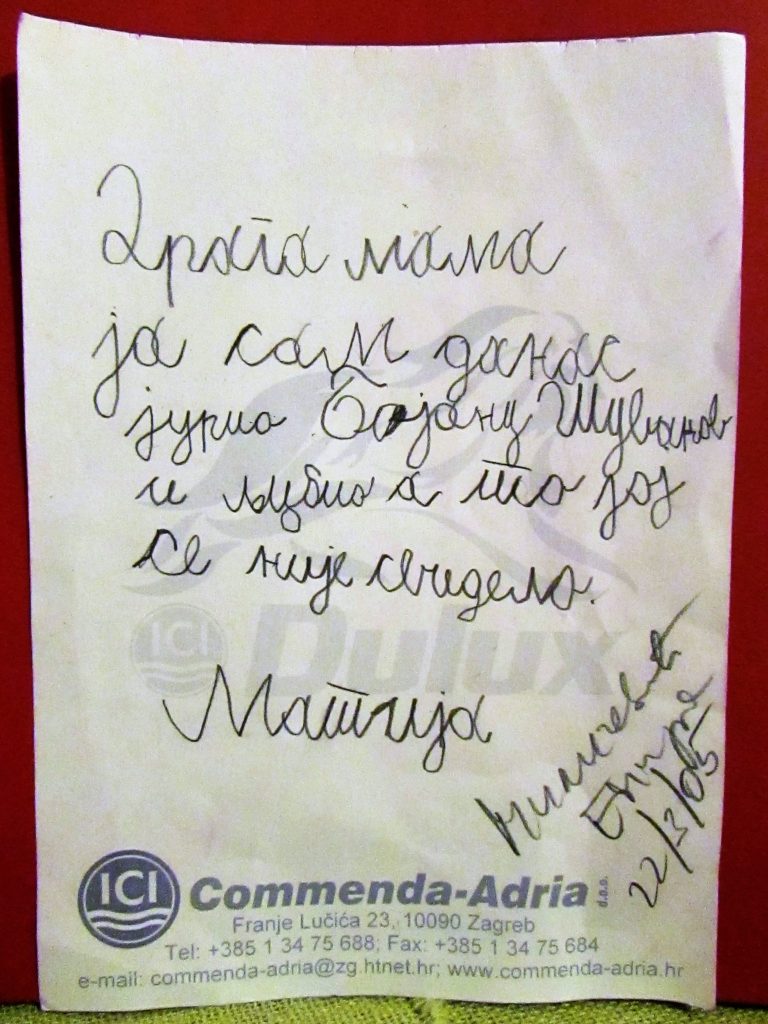 Драга мама
ја сам данас
јурио Бојану Шувчанов
и љубио а то јој
се није свидело.
Матија
22/3/05
ICI Dulux
ICI Commenda-Adria d.o.o.
Franje Lučića 23, 10090 Zagreb
Tel: +385 1 34 75 688; Fax: +385 1 34 75 684
e-mail: commenda-adria@zg.htnet.hr; www.commenda-adria.hr